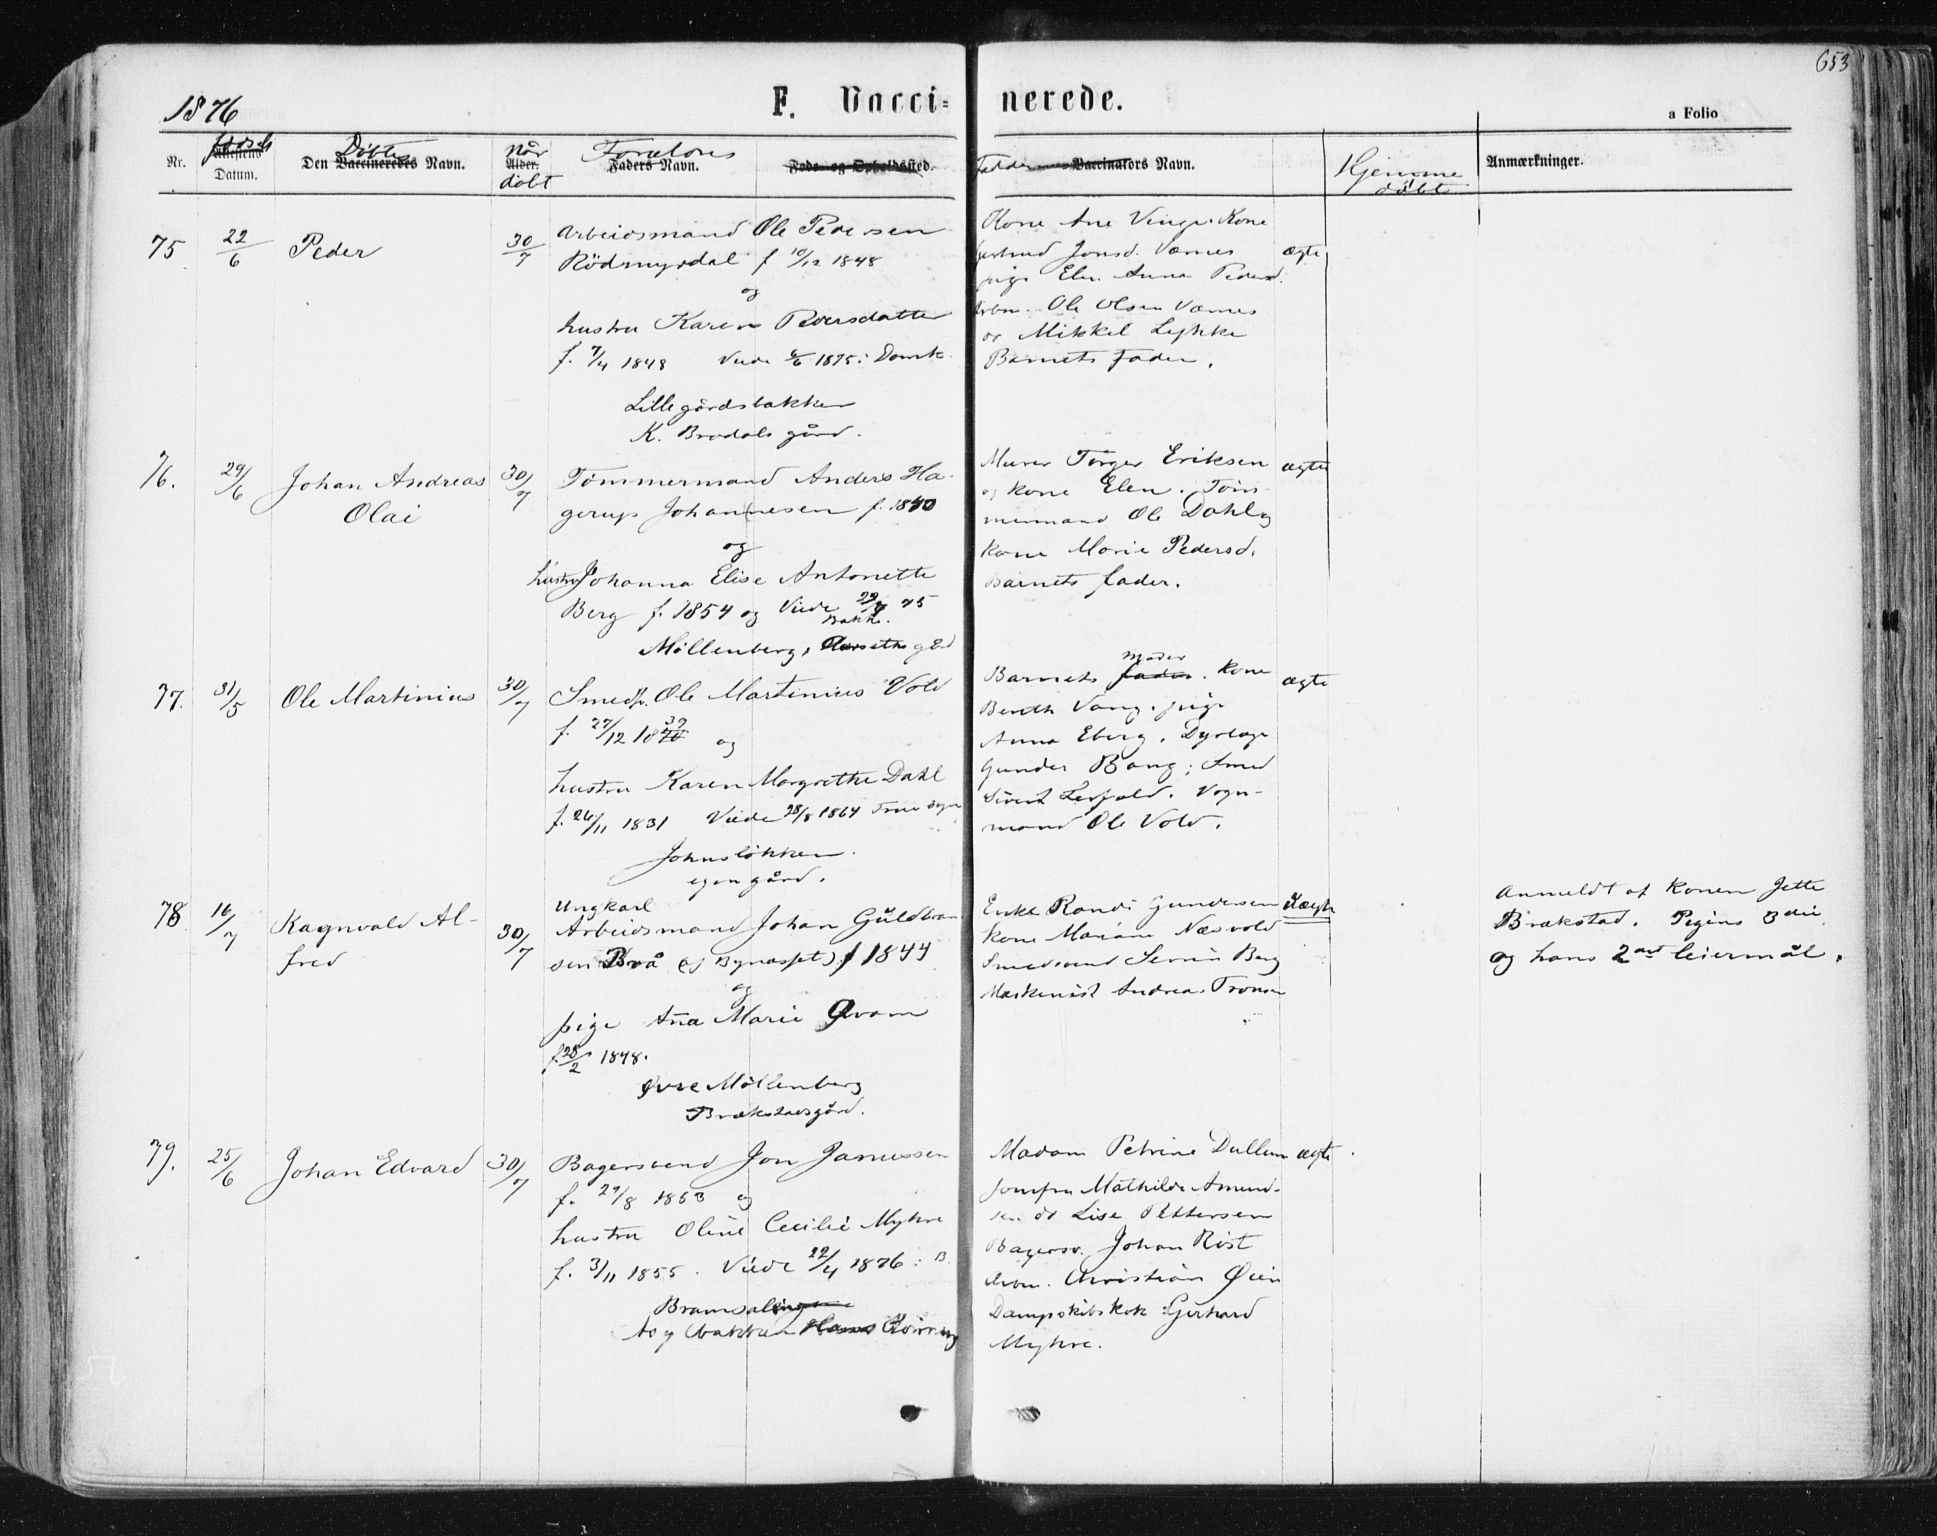 653
1876
F. Vacci= nerede.
a Folio
Nr.
Datum.
Den Vaccineredes Navn.
Døbtes
når
Alder.
døbt
Forældres
Faders Navn.
Føde- og Opholdssted.
Vaccinators Navn.
Hjemme
døbt
Anmærkninger.
75
22/6
Peder
30/7
Arbeidsmand Ole Pedersen
Rödmyrdal f 10/12 1848
og
hustru Karen
f. 7/4 1848 Viede 6/6 1875 i Domk.
Lillegårdsbakken
K. Brodals gård.
Kone Ane Vinge. Kone
Jonsd. Værnes
pige Elen Anna Pedersd.
Ole Olsen Værnes
og Mikkel Lykke
Barnets fader.
ægte
76.
29/6
Johan Andreas
Olai
30/7
Tömmermand Anders Ha-
gerups Johannesen f. 1850
og
hustru Johanna Elise Antonette
Berg f. 1854 og Viede 29/7 75
Bakke.
Möllenberg, gård
Murer Törger Eriksen
og kone Elen. Töm-
mermand Ole Dahl og
kone Marie Pedersd.
Barnets fader.
ægte
77.
31/5
Ole Martinius
30/7
Smedsv. Ole Martinius Vold
f. 27/12 1839 og
hustru Karen Margrethe Dahl
f. 26/11 1831 Viede 28/8 1864 Frue sogn
Johnsløkken.
egen gård.
Barnets fader moder. Kone
Bereth Vang. pige
Anna Eberg. Dyrlæge
Gunder Bang; Smed
Sivert. Vogn-
mand Ole Vold.
ægte
78
16/7
Ragnvald Al-
fred
30/7
Ungkarl
Arbeidsmand Johan Guldbran
sen Brå (af Bynæsset) f 1844
og
pige Ana Marie Qvam
f. 28/2 1848.
Øvre Möllenberg
Brækstadsgård.
Enke Randi Gundersen
kone Mariane Næsvold
Smedsvend Serein Berg
Maskenist Andreas Tronsen
Uægte
Anmeldt af konen Jette
Brækstad. Pigens 3die
og hans 2det leiermål.
79.
25/6
Johan Edvard
30/7
Bagersvend Jon Janussen
f. 29/8 1853 og
hustru Oline Cecilie Myhre
f. 3/11 1855. Viede 22/4 1876 i B.
Bramsalingen
Asylbakken Hans
Madam Petrine Dullum
Jomfru Mathilde Amund-
sen do Lise Pettersen
Bagersv. Johan Rist
Arbm. Christian Øien
Dampskibskok Gerhard
Myhre.
ægte